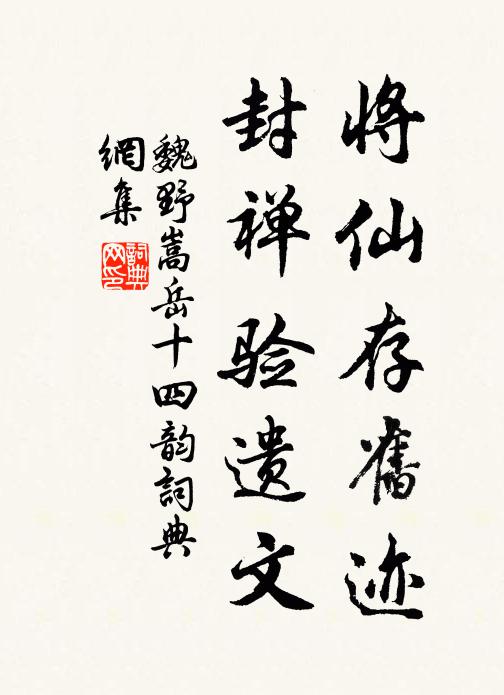 将仙存舊迹
封禅验遗文
魏野嵩岳十四韵詞典
網集
詞典网印